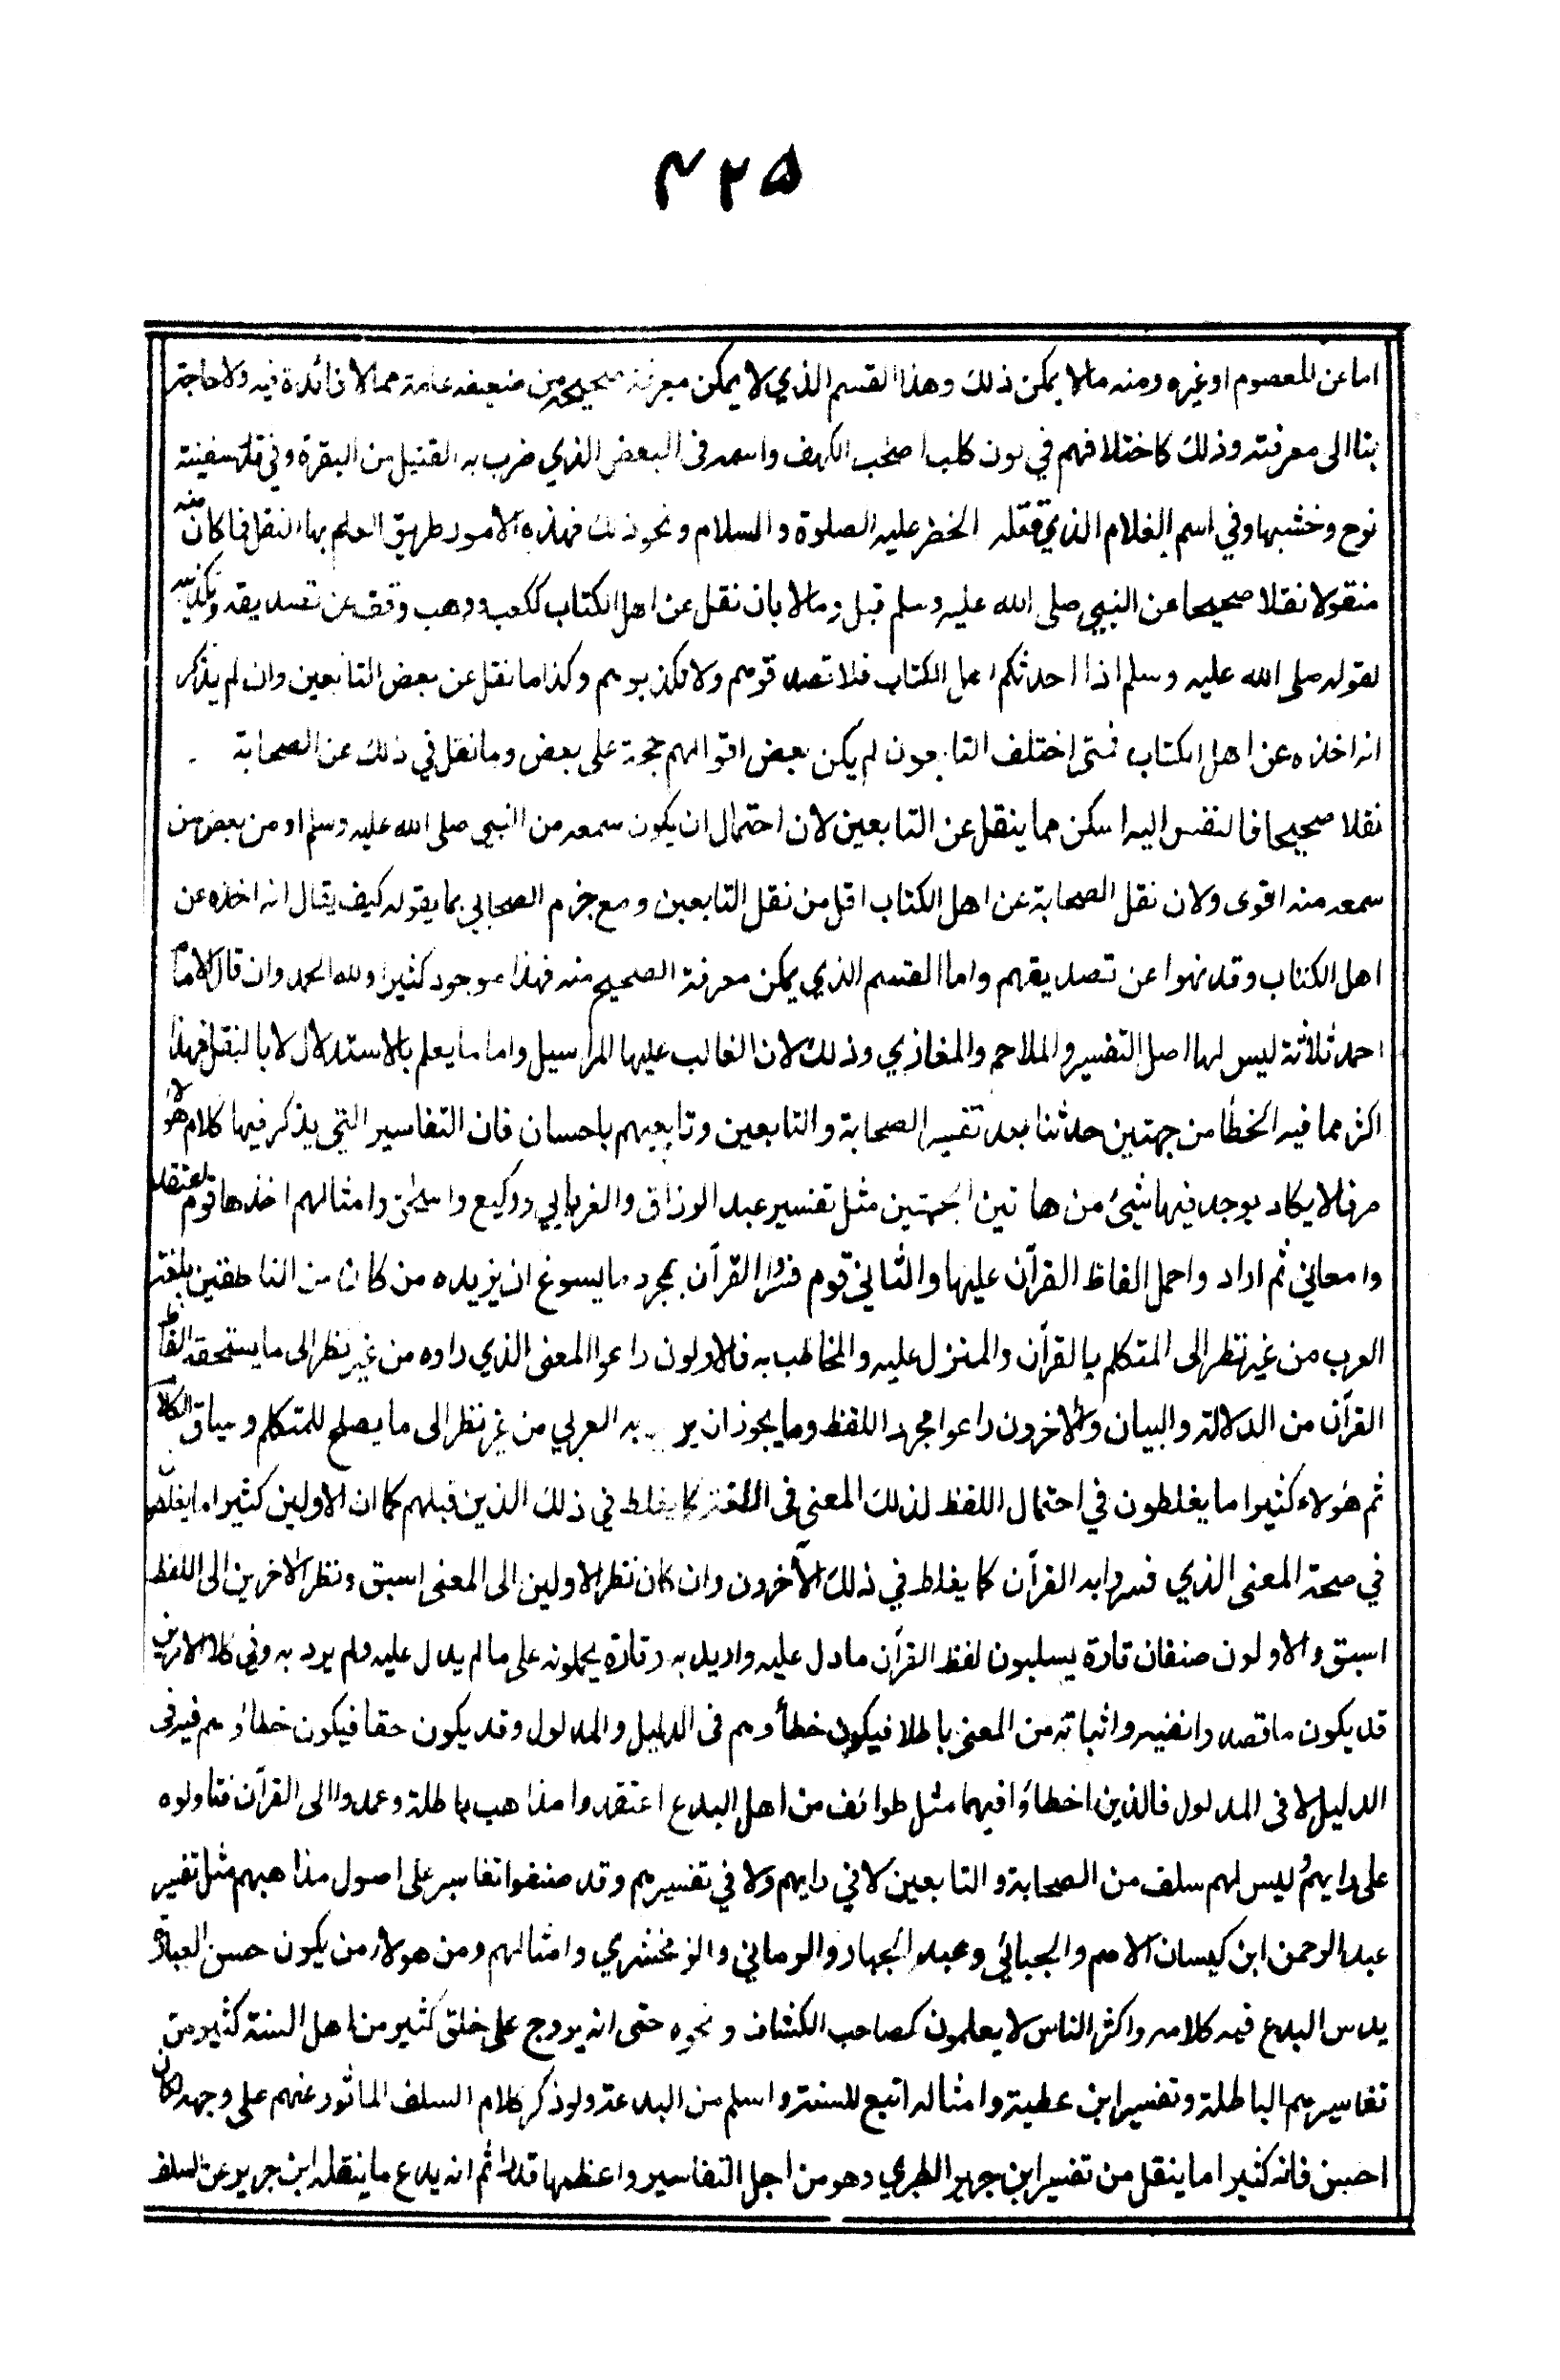 ۴۲۵
اما عن المعصوم او غيره ومنه مالا يمكن ذلك وهذا القسم الذي لا يمكن معرفة صحيحه من ضعيفه عامته مما لا فائدة فيه ولا حاجة
بنا الى معرفته وذلك كاختلافهم في لون كلب اصحب الكهف واسمه فى البعض الذي ضرب به القتيل من البقرة وفي قدر سفينة
نوح وخشبها وفي اسم الغلام الذي قتله الخضر عليه الصلوة والسلام ونحو ذلك فهذه الأمور طريق العلم بها النقل فما كان منه
منقولا نقلا صحيحا عن النبي صلى الله عليه وسلم قبل ومالا بان نقل عن اهل الكتاب ككعب ووهب وقف عن تصديقه وتكذيبه
لقوله صلى الله عليه وسلم اذا احدثكم اهل الكتاب فلا تصدقوهم ولا تكذبوهم وكذا ما نقل عن بعض التابعين وان لم يذكر
انه اخذه عن اهل الكتاب فمتى اختلف التابعون لم يكن بعض اقوالهم حجة على بعض وما نقل في ذلك عن الصحابة
نقلا صحيحا فالنفس اليه اسكن مما ينقل عن التابعين لان احتمال ان يكون سمعه من النبي صلى الله عليه وسلم او من بعض من
سمعه منه اقوى ولان نقل الصحابة عن اهل الكتاب اقل من نقل التابعين ومع جزم الصحابي بما يقوله كيف يقال انه اخذه عن
اهل الكتاب وقد نهوا عن تصديقهم واما القسم الذي يمكن معرفة الصحيح منه فهذا موجود كثيرا ولله الحمد وان قال الامام
احمد ثلاثة ليس لها اصل التفسير والملاحم والمغازي وذلك لان الغالب عليها المراسيل واما ما يعلم بالاستدلال لا بالنقل فهذا
اكثر مما فيه الخطأ من جهتين حدثتا بعد تفسير الصحابة والتابعين وتابعيهم باحسان فان التفاسير التي يذكر فيها كلام هؤلاء
صرفا لا يكاد يوجد فيها شيئ من هاتين الجهتين مثل تفسير عبد الرزاق والفريابي ووكيع واسحق وامثالهم احدها قوم اعتقد
وا معاني ثم اراد واحمل الفاظ القرآن عليها والثاني قوم فسروا القرآن بمجرد ما يسوغ ان يريده من كان من الناطقين بلغة
العرب من غير نظر الى المتكلم بالقرآن والمنزل عليه والمخاطب به فالاولون راعوا المعنى الذي راوه من غير نظر الى ما يستحقه الفاظ
القرآن من الدلالة والبيان والآخرون راعوا مجرد اللفظ وما يجوز ان ير به العربي من غير نظر الى ما يصلح للمتكلم وسياق الكلام
ثم هؤلاء كثيرا ما يغلطون في احتمال اللفظ لذلك المعنى فى اللغة كما يغلط في ذلك الذين قبلهم كما ان الاولين كثيرا ما يغلطون
في صحة المعنى الذي فسروا به القرآن كما يغلط في ذلك الآخرون وان كان نظر الاولين الى المعنى اسبق ونظر الآخرين الى اللفظ
اسبق والاولون صنفان تارة يسلبون لفظ القرآن ما دل عليه واريد به وتارة يحملونه على ما لم يدل عليه ولم يرد به وفي كلا الامرين
قد يكون ما قصدوا نفيه واثباته من المعنى باطلا فيكون خطأوهم فى الدليل والمدلول وقد يكون حقا فيكون خطاؤهم فيه فى
الدليل لا فى المدلول فالذين اخطاؤا فيهما مثل طوائف من اهل البدع اعتقدوا مذاهب باطلة وعمدوا الى القرآن فتاولوه
على رايهم وليس لهم سلف من الصحابة والتابعين لا في رايهم ولا في تفسيرهم وقد صنفوا تفاسير على اصول مذاهبهم مثل تفسير
عبد الرحمن ابن كيسان الاصم والجبائي وعبد الجبار والرماني والزمخشري وامثالهم ومن هولاء من يكون حسن العبارة
يدس البدع فيه كلامه واكثر الناس لا يعلمون كصاحب الكشاف ونحوه حتى انه يروج على خلق كثير من اهل السنة كثير من
تفاسيرهم الباطلة وتفسير ابن عطية وامثاله اتبع للسنة واسلم من البدعة ولو ذكر كلام السلف الماثور عنهم على وجهه لكان
احسن فانه كثيرا ما ينقل من تفسير ابن جرير الطبري وهو من اجل التفاسير واعظمها قدرا ثم انه يدع ما ينقله ابن جرير عن السلف